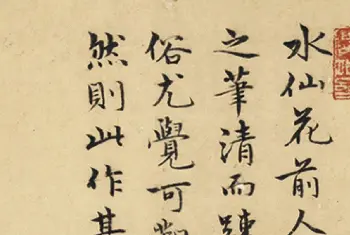 水仙花前人
之筆清而疎
俗尤覺可
然則此作甚